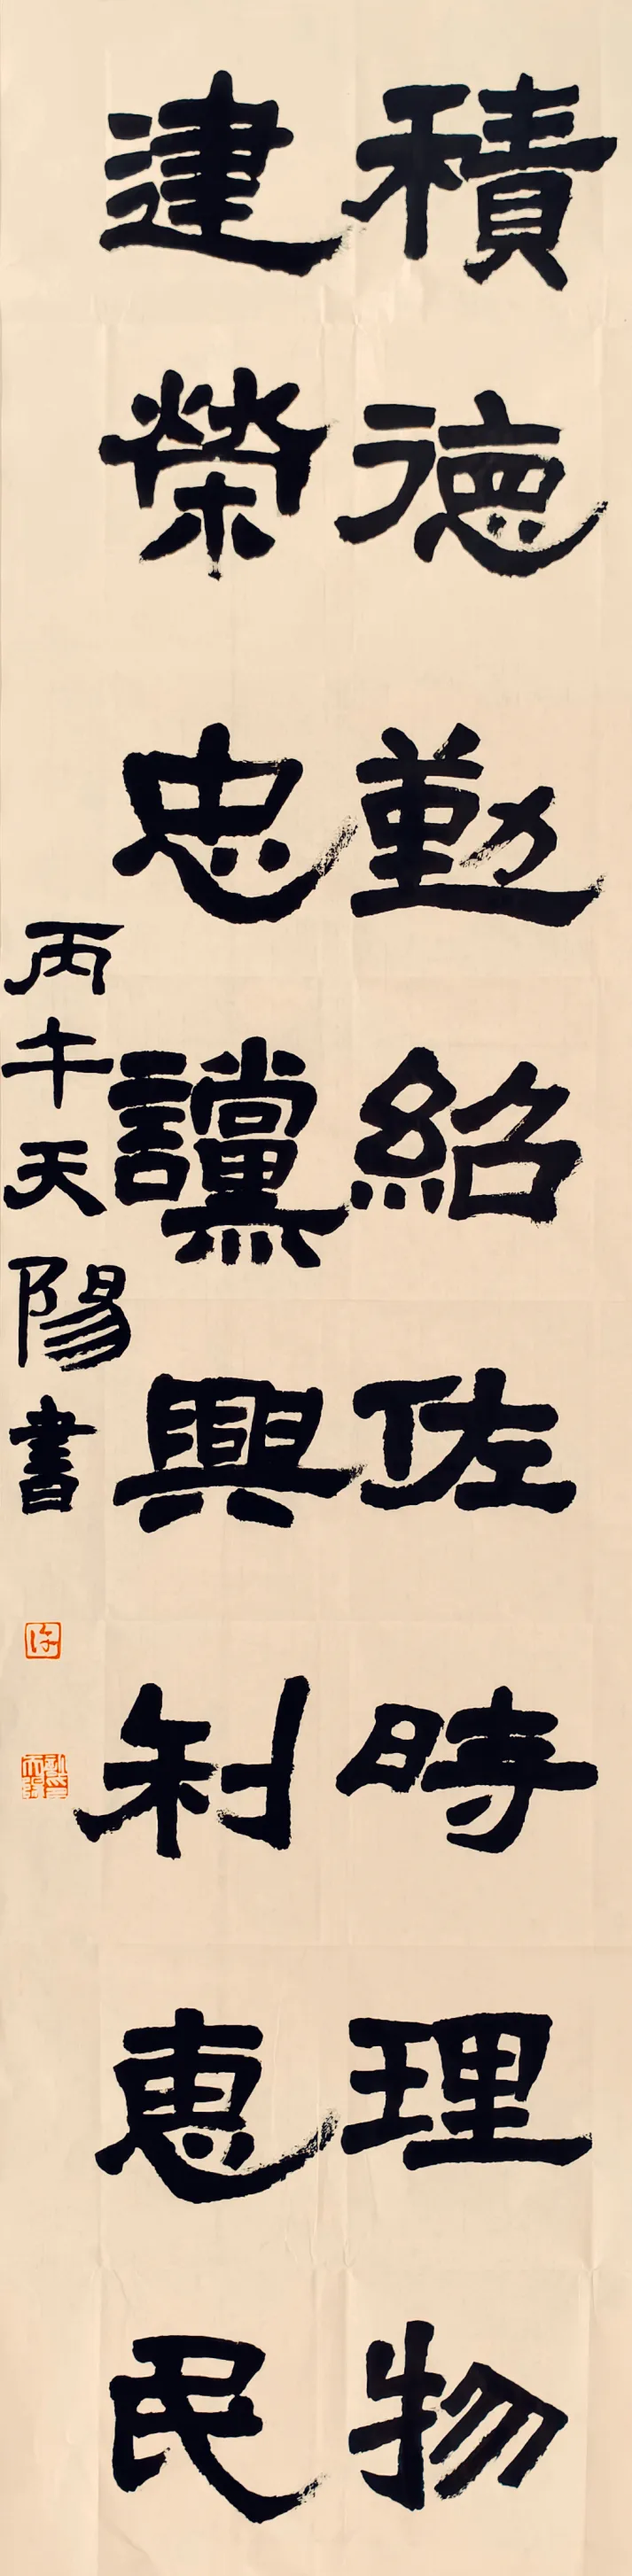 積德勤紹佐時理物
建榮忠讜興利惠民
丙午天陽書